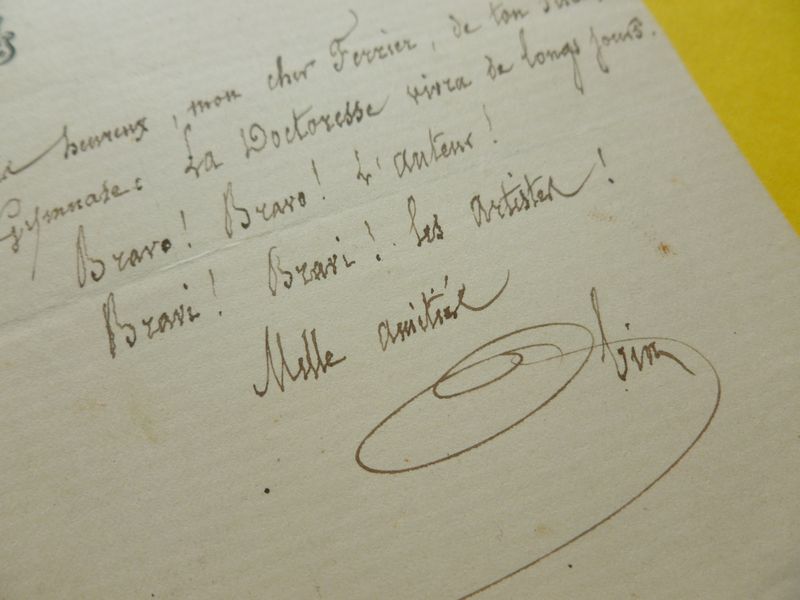 heureux, mon cher Ferrier, de ton
Gymnase: La Doctoresse vivra de longs jours.
Bravo! Bravo! L'auteur!
Bravi! Bravi! les artistes!
Mille amitiés
Obin